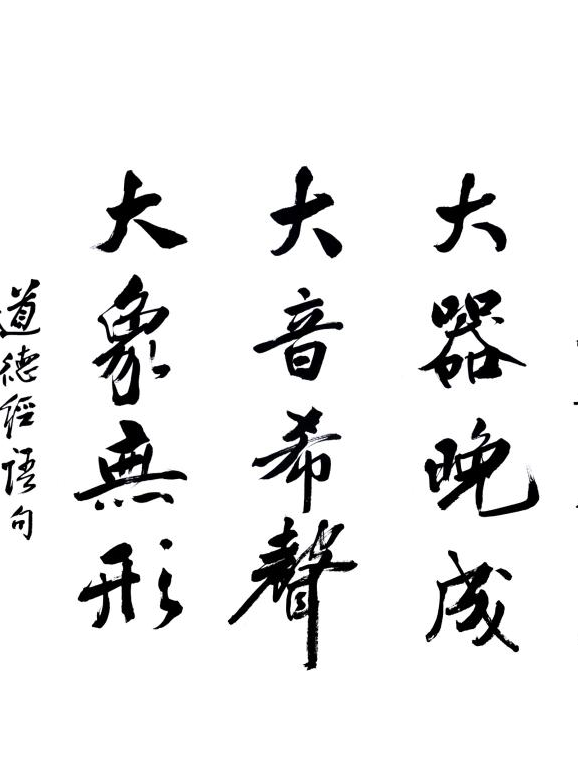 大器晚成
大音希聲
大象無形
道德經語句